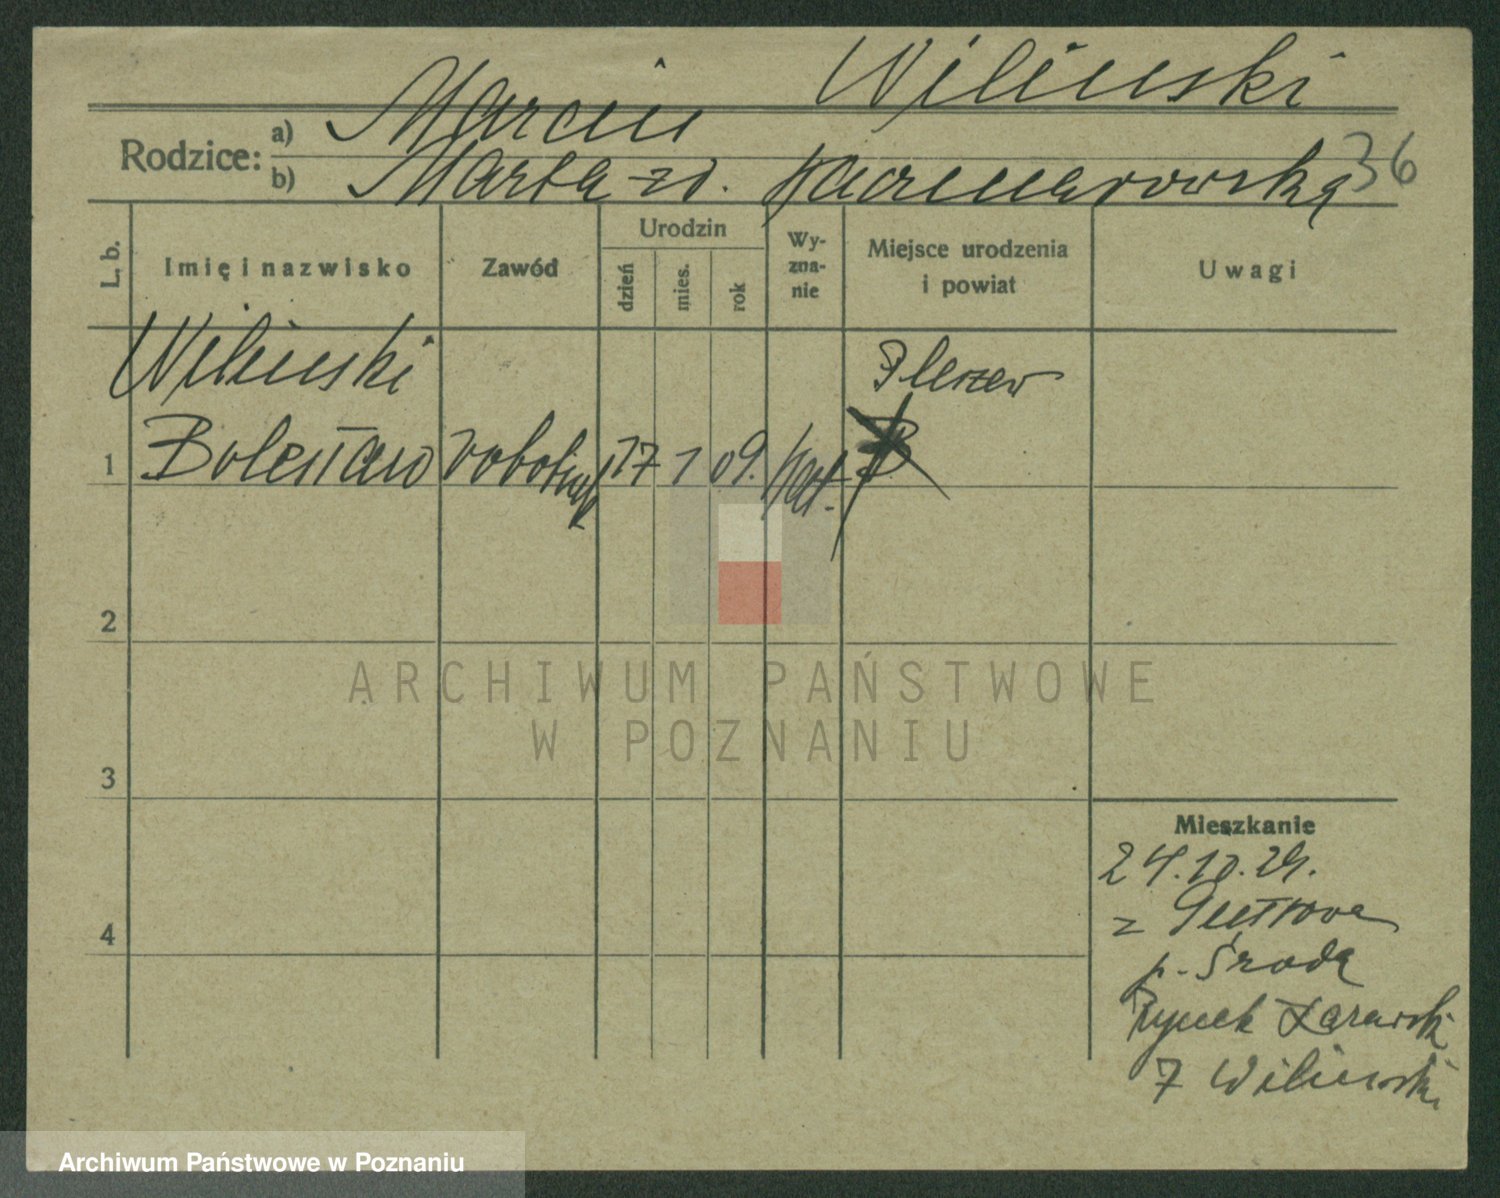 Wilinski
Rodzice: a) Marcin
b) Marta zd. Kaczmarowska 36
L. b. Imię i nazwisko Zawód Urodzin dzień mies. rok Wyzna-nie Miejsce urodzenia i powiat Uwagi
Wilinski Pleszew
1 Bolesław robotnik 17 1 09. kat.
2
ARCHIWUM PAŃSTWOWE
W POZNANIU
3
Mieszkanie
24.10.29.
z
4
p. Środa
Rynek Łazarski
7 Wilinski
Archiwum Państwowe w Poznaniu